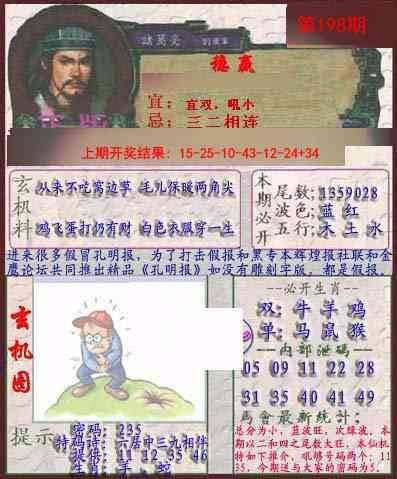 第198期
諸葛亮
稳赢
宜：宜双，吼小
忌：三二相连
上期开奖结果：15-25-10-43-12-24+34
玄机料
从来不吃窝边草 毛儿保暖两角尖
鸡飞蛋打仍有财 白色衣服穿一生
本期必开
尾数；1359028
波色；蓝 红
五行；木 土 水
进来很多假冒孔明报，为了打击假报和黑专本辉煌报社联和金
鹰论坛共同推出精品《孔明报》如没有雕刻字版，都是假报。
玄机图
--必开生肖--
双：牛 羊 鸡
单：马 鼠 猴
--内部泄码--
05 09 11 22 28
31 35 40 41 49
馬會最新統计：
总分为小，蓝波旺，次绿波，本
期以二和四之尾数大旺，本仙机
特如下推介，吼够号码两个：11
35，今期送与大家的密码为5．
提示
密码：235
特码诗：六居中三九相伴
提供：11 12 35 46
生肖：羊、蛇